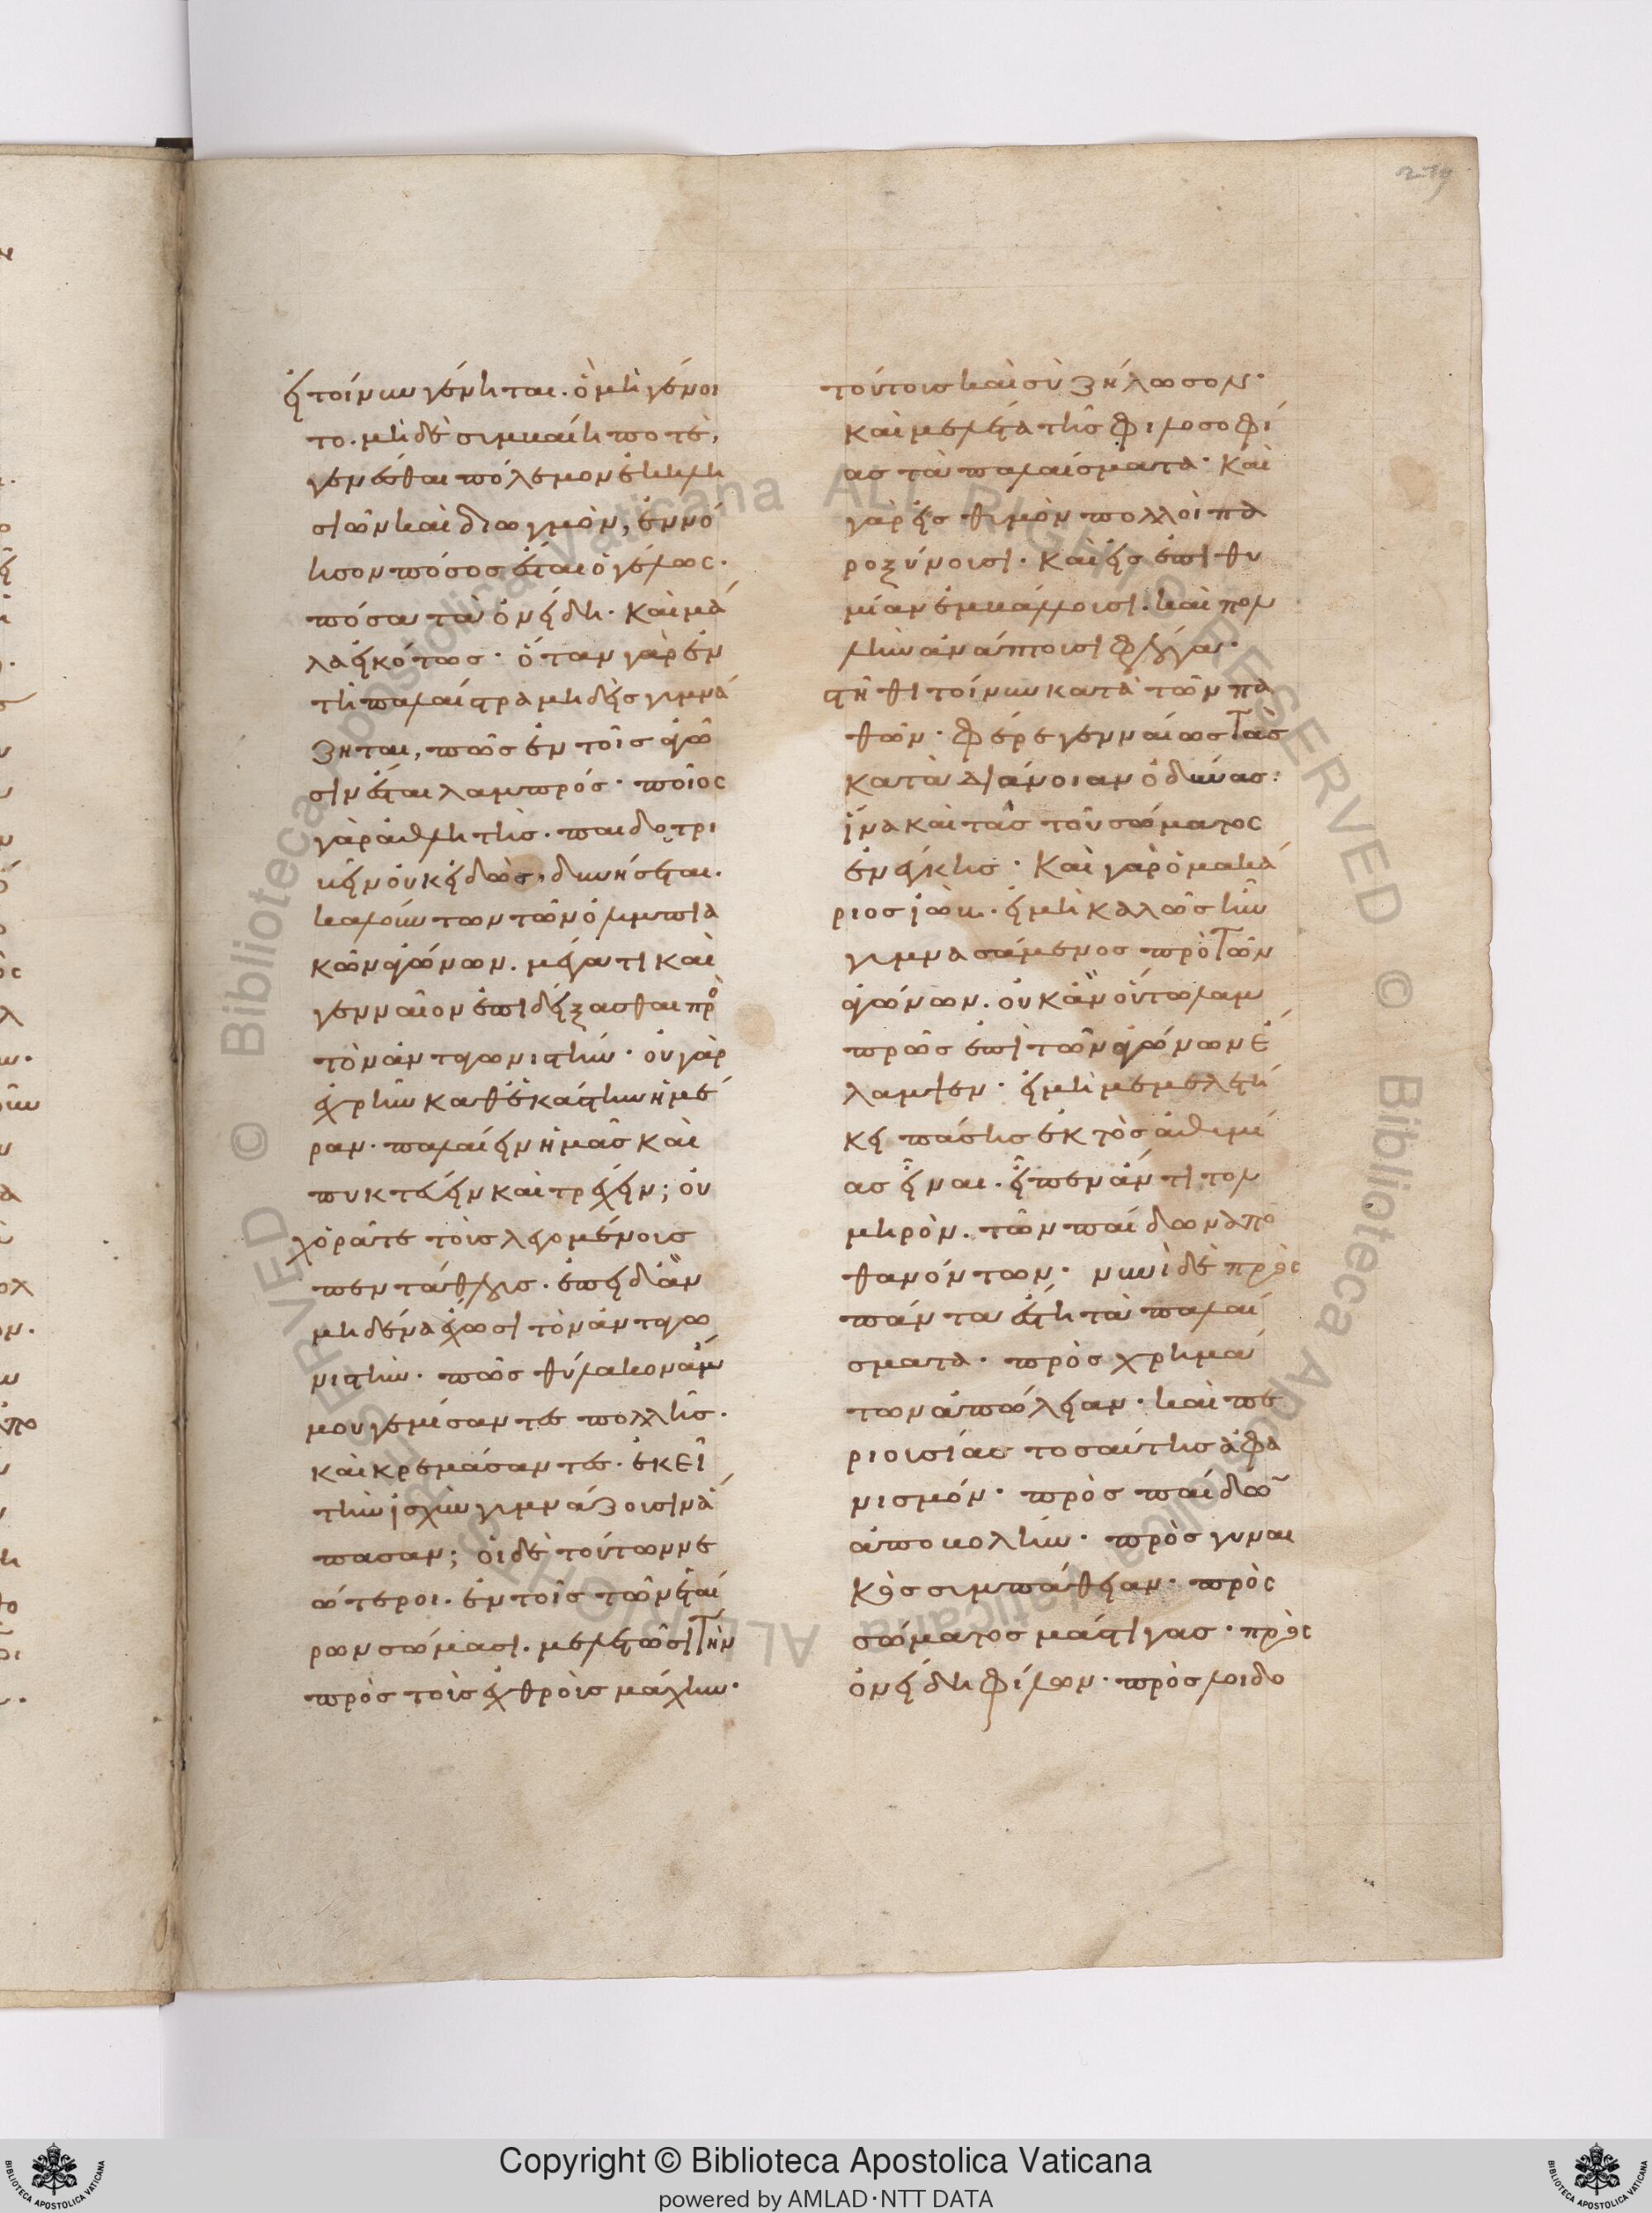 εἰ τοίνυν γένηται· ὃ μὴ γένοι
το· μὴ δὲ συμβαίη ποτὲ,
γενέσθαι πόλεμον ἐκκλη
σιῶν καὶ διωγμὸν, ἐννό
ησον πόσος ἔσται ὁ γέλως·
πόσα τὰ ὀνείδη· καὶ μά
λα εἰκότως· ὅταν γὰρ ἐν
τῆ παλαίστρα μηδεὶς γυμνά
ζηται, πῶς ἐν τοῖς ἀγῶ
σιν ἔσται λαμπρός· ποῖος
γὰρ ἀθλητὴς· παιδοτρί
βην οὐκ εἰδὼς, δυνήσεται·
καλούντων τῶν ὀλυμπια
κῶν ἀγώνων· μέγα τι καὶ
γενναῖον ἐπιδείξασθαι πρὸ
τὸν ἀνταγωνιστήν· οὐ γὰρ
ἐχρῆν καθ' ἑκάστην ἡμέ
ραν· παλαίειν ἡμᾶς καὶ
πυκτεύειν καὶ τρέχειν; οὐ
χ' ὁρᾶτε τοὺς λεγομένους
πεντάθλους· ἐπειδὰν
μηδένα ἔχωσι τὸν ἀνταγω
νιστὴν· πῶς θύλακον ἄμ
μου γεμίσαντες πολλῆς·
καὶ κρεμάσαντες· ἐκεῖ
τὴν ἰσχὺν γυμνάζουσιν ἅ
πασαν; οἱ δὲ τούτων νε
ώτεροι· ἐν τοῖς τῶν ἑταί
ρων σώμασι· μελετῶσι τὴν
πρὸς τοὺς ἐχθροὺς μάχην·
τούτους καὶ σὺ ζήλωσον·
καὶ μελέτα τῆς φιλοσοφί
ας τὰ παλαίσματα· καὶ
γὰρ εἰς θυμὸν πολλοὶ πα
ροξύνουσι· καὶ εἰς ἐπιθυ
μίαν ἐμβάλλουσι· καὶ πολ
λὴν ἀνάπτουσι φλόγα·
στῆθι τοίνυν κατὰ τῶν πα
θῶν· φέρε γενναίως τὰς
κατὰ διάνοιαν ὀδύνας·
ἵνα καὶ τὰς τοῦ σώματος
ἐνείκης· καὶ γὰρ ὁ μακά
ριος ἰὼβ· εἰ μὴ καλῶς ἦν
γυμνασάμενος πρὸ τῶν
ἀγώνων· οὐκ ἂν οὕτω λαμ
πρῶς ἐπὶ τῶν ἀγώνων ἔ
λαμψεν· εἰ μὴ μεμελετή
κει πάσης ἐκτὸς ἀθυμί
ας εἶναι· εἶπεν ἄν τι τολ
μηρὸν· τῶν παίδων ἀπο
θανόντων· νυνὶ δὲ πρὸς
πάντα ἔστη τὰ παλαί
σματα· πρὸς χρημά
των ἀπώλειαν· καὶ πε
ριουσίας τοσαύτης ἀφα
νισμόν· πρὸς παίδων
ἀποβολήν· πρὸς γυναι
κὸς συμπάθειαν· πρὸς
σώματος μάστιγας· πρὸς
ὀνείδη φίλων· πρὸς λοιδο
Copyright © Biblioteca Apostolica Vaticana
powered by AMLAD·NTT DATA